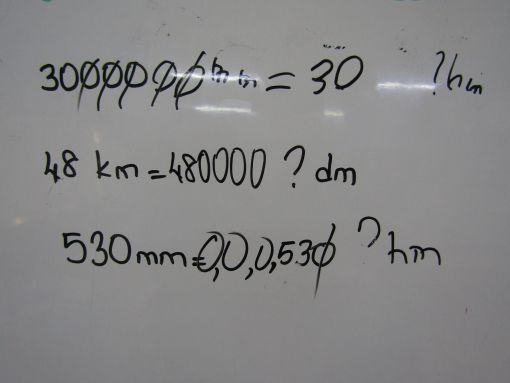 3000000 mm = 30 ? hm
48 km = 480000 ? dm
530 mm = 0,0,0,530 ? hm